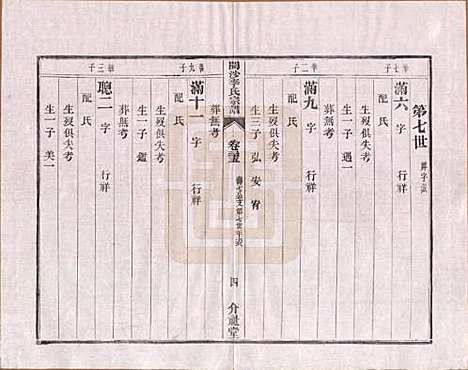 第七世
華七子
滿六 字 行祥
生歿俱失考
配氏
生一子 遇一
華二子
滿九 字 行祥
生歿俱失考
葬無考
配氏
生三子 弘 安 宥
開沙李氏宗譜
卷三
四
介祉堂
華九子
葬無考
滿十一 字 行祥
生歿俱失考
配氏
生一子 鑑
華三子
葬無考
聰二 字 行祥
生歿俱失考
配氏
生一子 美一